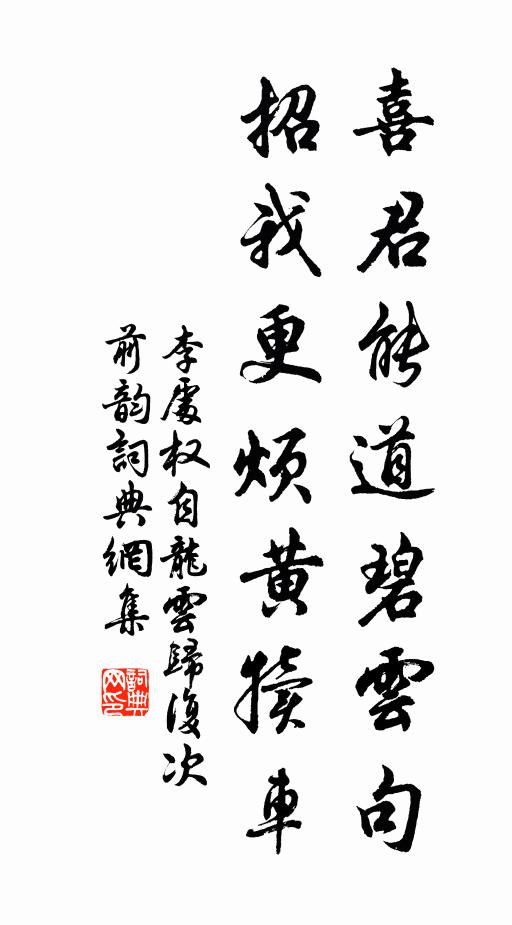 喜君能道碧雲句
招我更煩黃犢車
李處权自龍雲歸復次
前韵詞典網集
詞典
网印